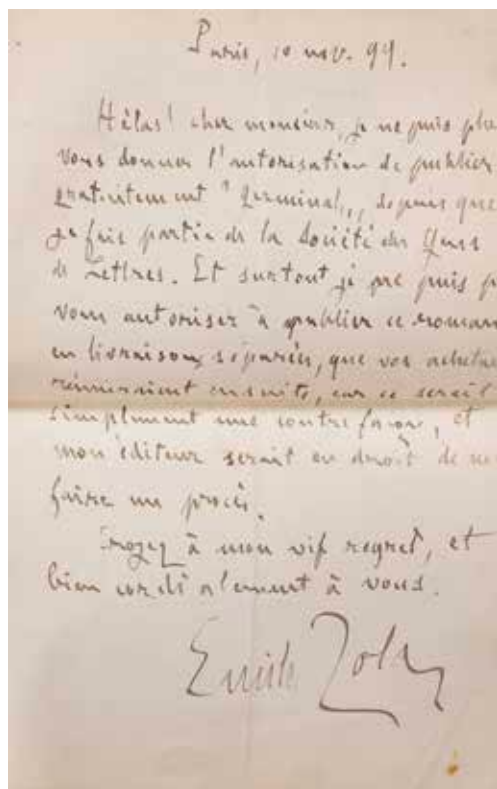 Paris, 10 nov. 99.
Hélas! cher monsieur, je ne puis plu
vous donner l'autorisation de publier
gratuitement "Germinal", depuis que
je fais partie de la Société des Gens
de Lettres. Et surtout je ne puis p
vous autoriser à publier ce roman
en livraisons séparées, que vos achete
réuniraient ensuite, car ce serait
simplement une contrefaçon, et
mon éditeur serait en droit de no
faire un procès.
Croyez à mon vif regret, et
bien cordialement à vous.
Emile Zola